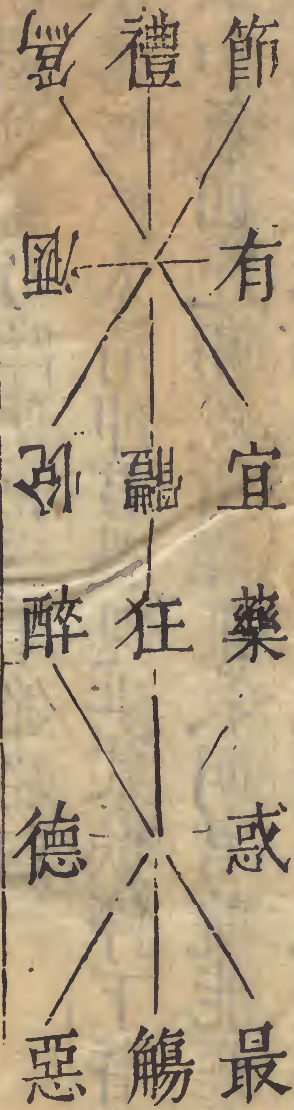 節有宜藥惑最
禮 狂觴
酒 醉德惡